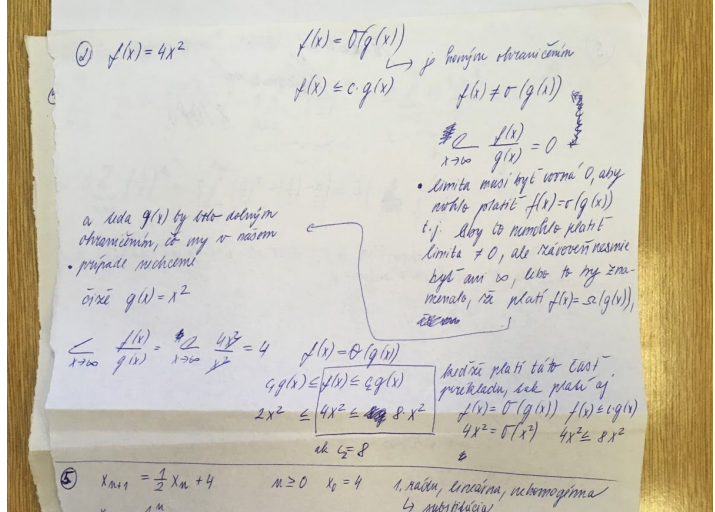 ② f(x) = 4x²
f(x) = O(g(x))
↳ je horným ohraničením
f(x) ≤ c·g(x)
f(x) ≠ σ(g(x))
x→∞ f(x)/g(x) = 0
• limita musí byť rovná 0, aby
mohlo platiť f(x)=σ(g(x))
t.j. aby to nemohlo platiť
limita ≠ 0, ale zároveň nesmie
byť ani ∞, lebo to by zna-
menalo, že platí f(x)=Ω(g(x)),
a teda g(x) by bolo dolným
ohraničením, čo my v našom
• prípade nechceme
čiže g(x) = x²
x→∞ f(x)/g(x) = x→∞ 4x²/x² = 4
f(x) = Θ(g(x))
c₁g(x) ≤ f(x) ≤ c₂g(x)
2x² ≤ 4x² ≤ 8·x²
ak c₂=8
keďže platí táto časť
príkladu, tak platí aj
f(x) = O(g(x)) f(x) ≤ c·g(x)
4x² = O(x²) 4x² ≤ 8x²
⑤ xₙ₊₁ = 1/2 xₙ + 4 n ≥ 0 x₀ = 4 1. rádu, lineárna, nehomogénna
↳ substitúcia